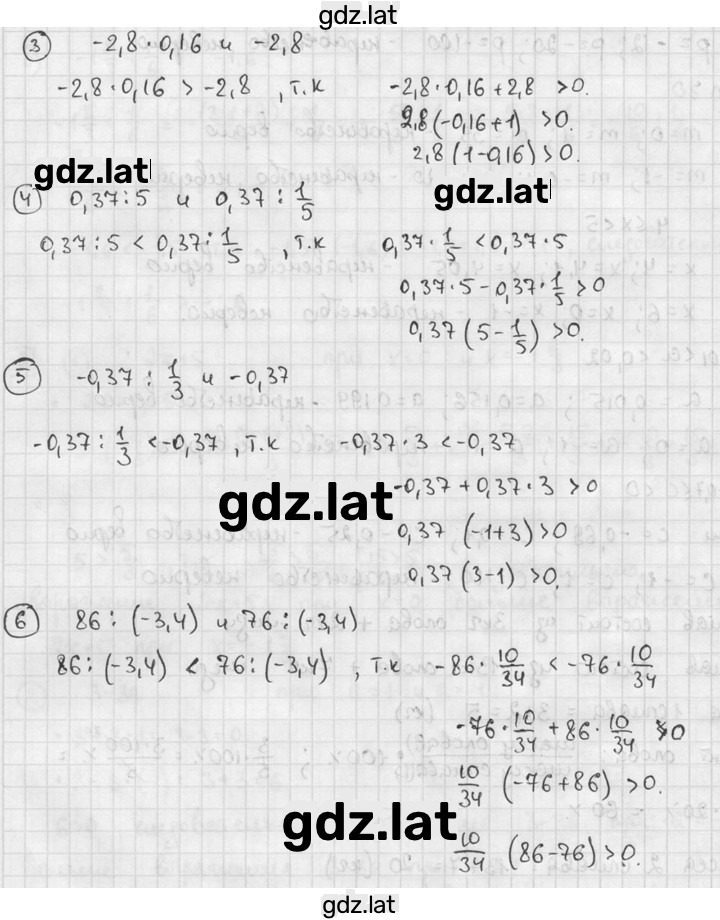 gdz.lat
3 -2,8·0,16 и -2,8
-2,8·0,16 > -2,8 , т.к -2,8·0,16+2,8 >0.
2,8(-0,16+1) >0.
2,8(1-0,16)>0.
gdz.lat
gdz.lat
4 0,37:5 и 0,37:1/5
0,37:5 < 0,37:1/5 , т.к 0,37·1/5 <0,37·5
0,37·5-0,37·1/5>0
0,37(5-1/5)>0.
5 -0,37:1/3 и -0,37
-0,37:1/3 <-0,37 , т.к -0,37·3 <-0,37
gdz.lat
-0,37+0,37·3 >0
0,37 (-1+3)>0
0,37(3-1)>0.
6 86:(-3,4) и 76:(-3,4)
86:(-3,4) < 76:(-3,4) , т.к -86·10/34 < -76·10/34
-76·10/34+86·10/34 >0
10/34 (-76+86) >0.
gdz.lat
10/34 (86-76)>0.
gdz.lat